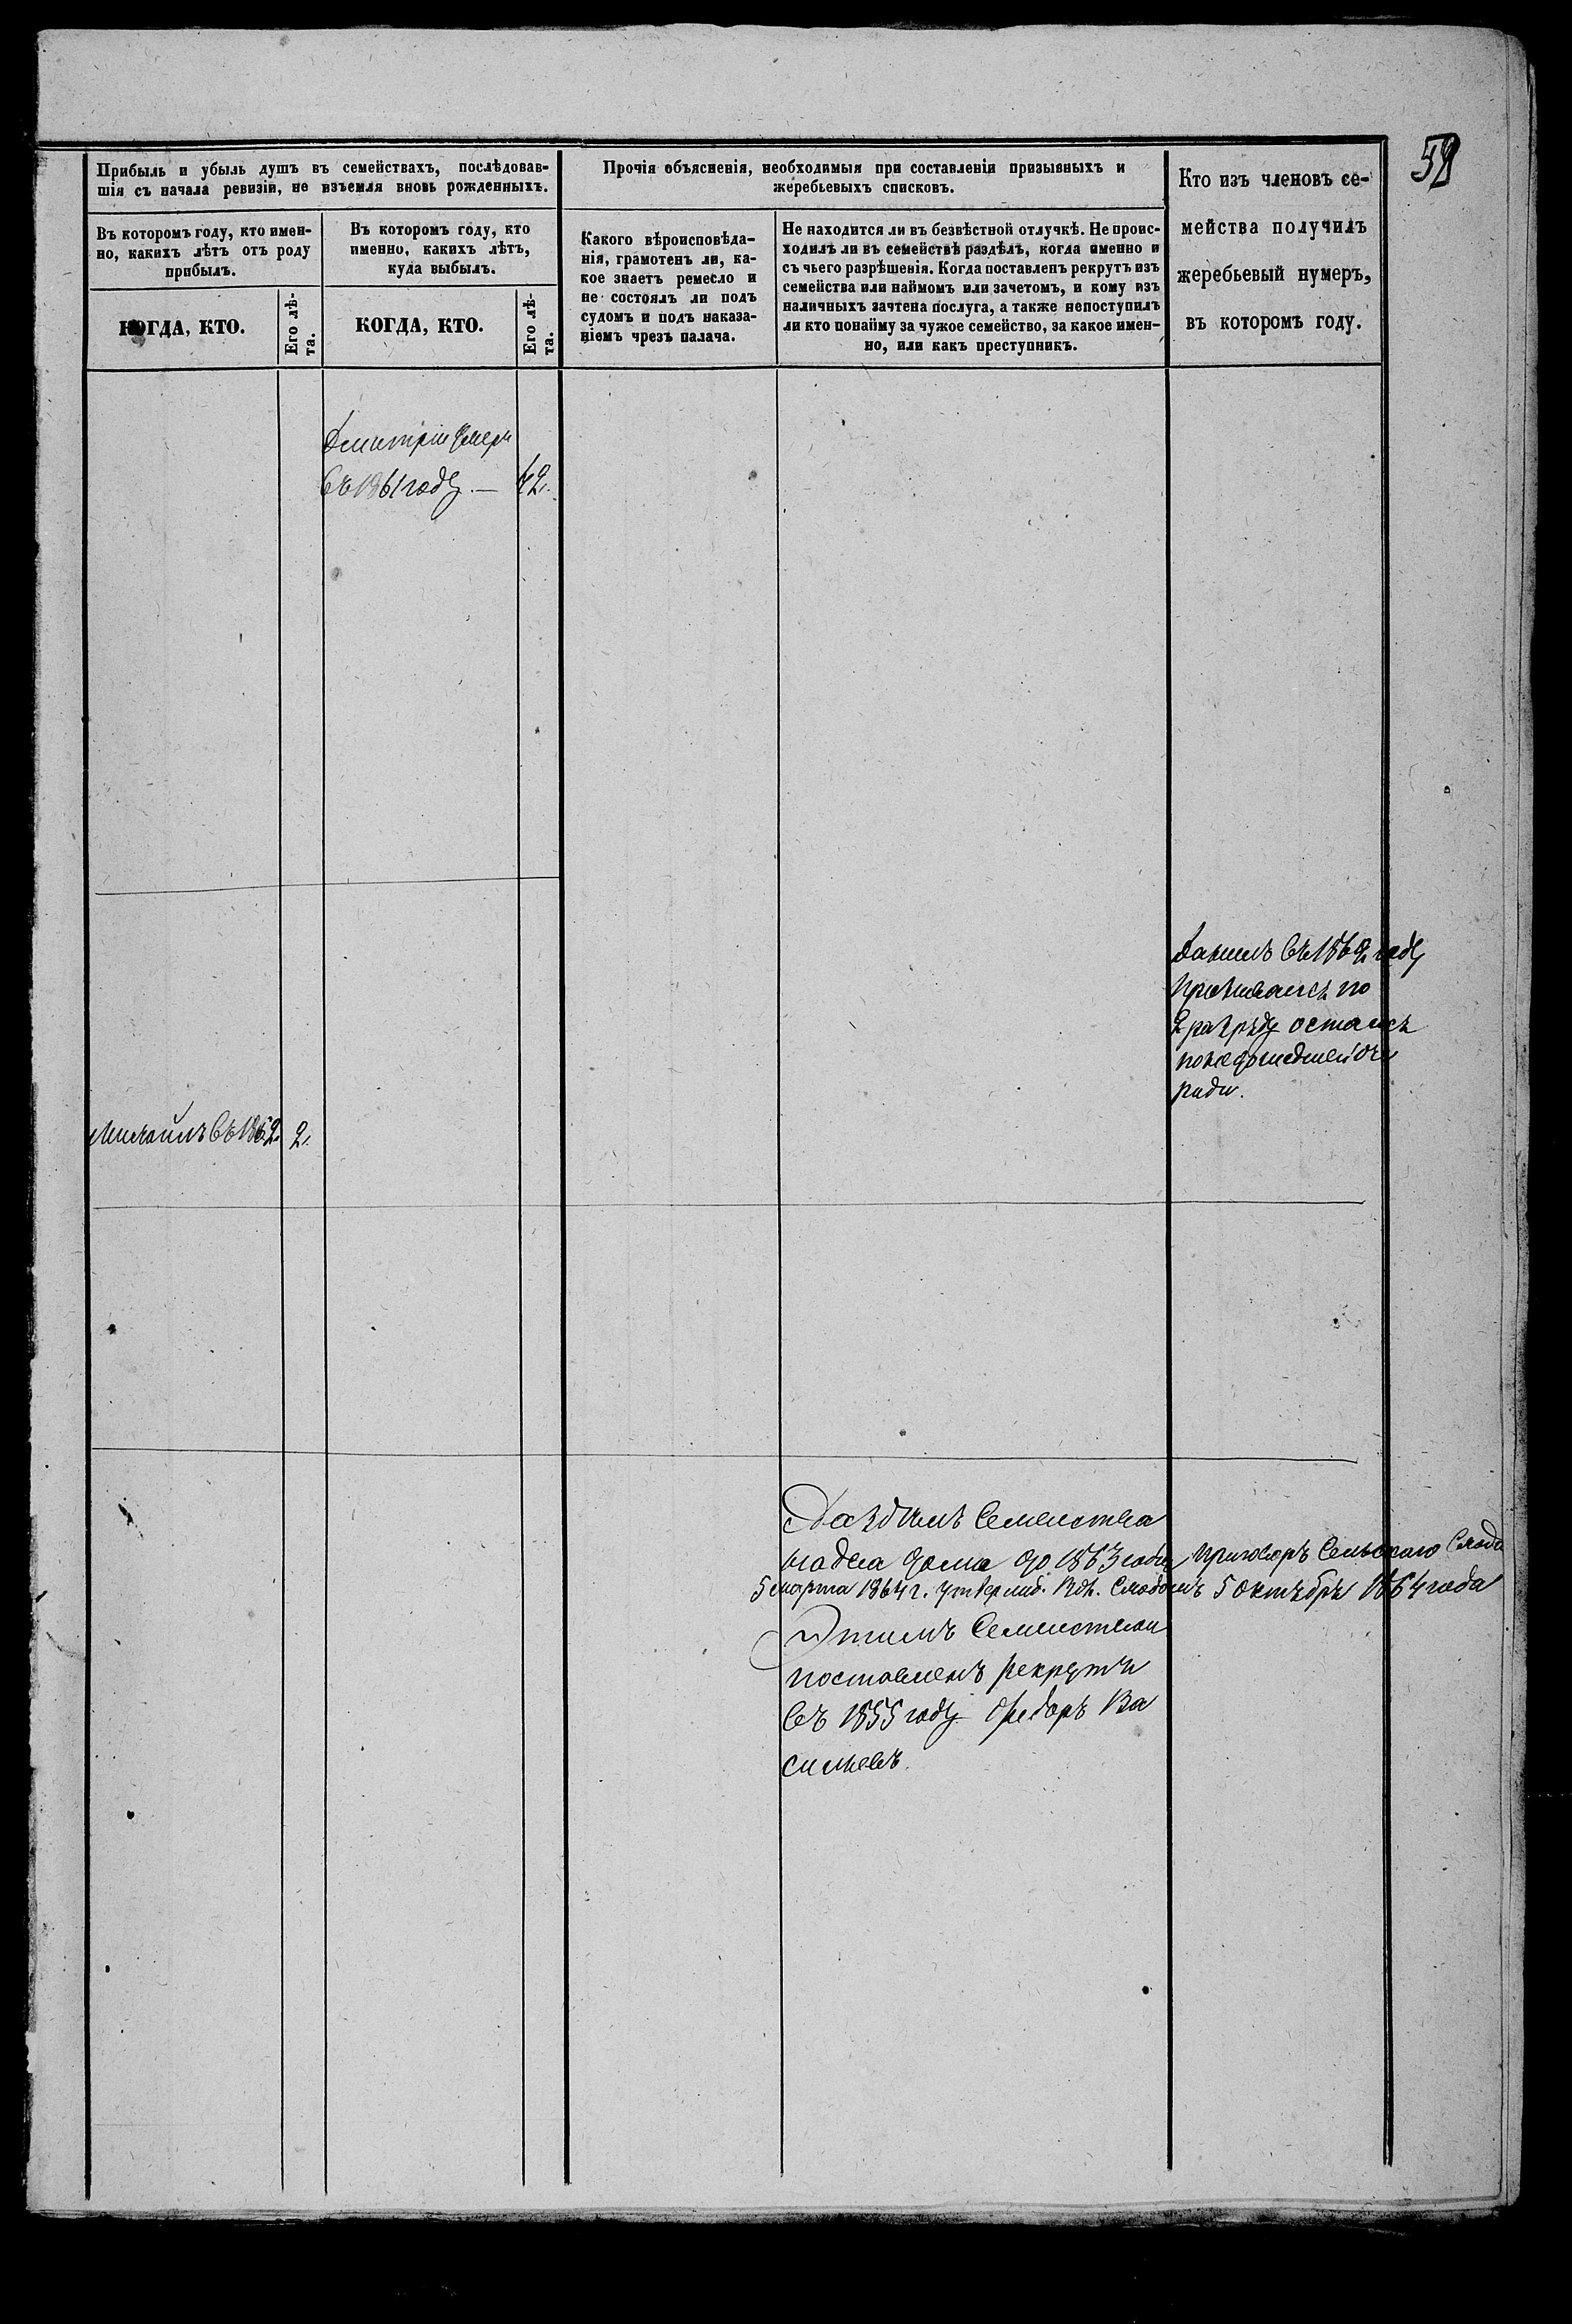 52
Прибыль и убыль душъ въ семействахъ, послѣдовав-
шія съ начала ревизіи, не изъемля вновь рожденныхъ.
Прочія объясненія, необходимыя при составленіи призывныхъ и
жеребьевыхъ списковъ.
Кто изъ членовъ се-
мейства получилъ
жеребьевый нумеръ,
въ которомъ году.
Въ которомъ году, кто имен-
но, какихъ лѣтъ отъ роду
прибылъ.
Въ которомъ году, кто
именно, какихъ лѣтъ,
куда выбылъ.
Какого вѣроисповѣда-
нія, грамотенъ ли, ка-
кое знаетъ ремесло и
не состоялъ ли подъ
судомъ и подъ наказа-
ніемъ чрезъ палача.
Не находится ли въ безвѣстной отлучкѣ. Не проис-
ходилъ ли въ семействѣ раздѣлъ, когда именно и
съ чьего разрѣшенія. Когда поставленъ рекрутъ изъ
семейства или наймомъ или зачетомъ, и кому изъ
наличныхъ зачтена послуга, а также непоступилъ
ли кто понайму за чужое семейство, за какое имен-
но, или какъ преступникъ.
КОГДА, КТО.
Его лѣ-
та.
КОГДА, КТО.
Его лѣ-
та.
Дмитрій умеръ
въ 1861 году. — 42.
Данилъ въ 1862 году
призывался по
2 разряду остался
понедошедшей оче
реди.
Михаилъ въ 1862. 2.
Раздѣлъ семейства
на два дома до 1863 года приговоръ Сельскаго Схода
5 марта 1864 г. утвержд. Схо­домъ 5 октября 1864 года
Этимъ семействомъ
поставленъ рекрутъ
въ 1855 году Федоръ Ва
сильевъ.